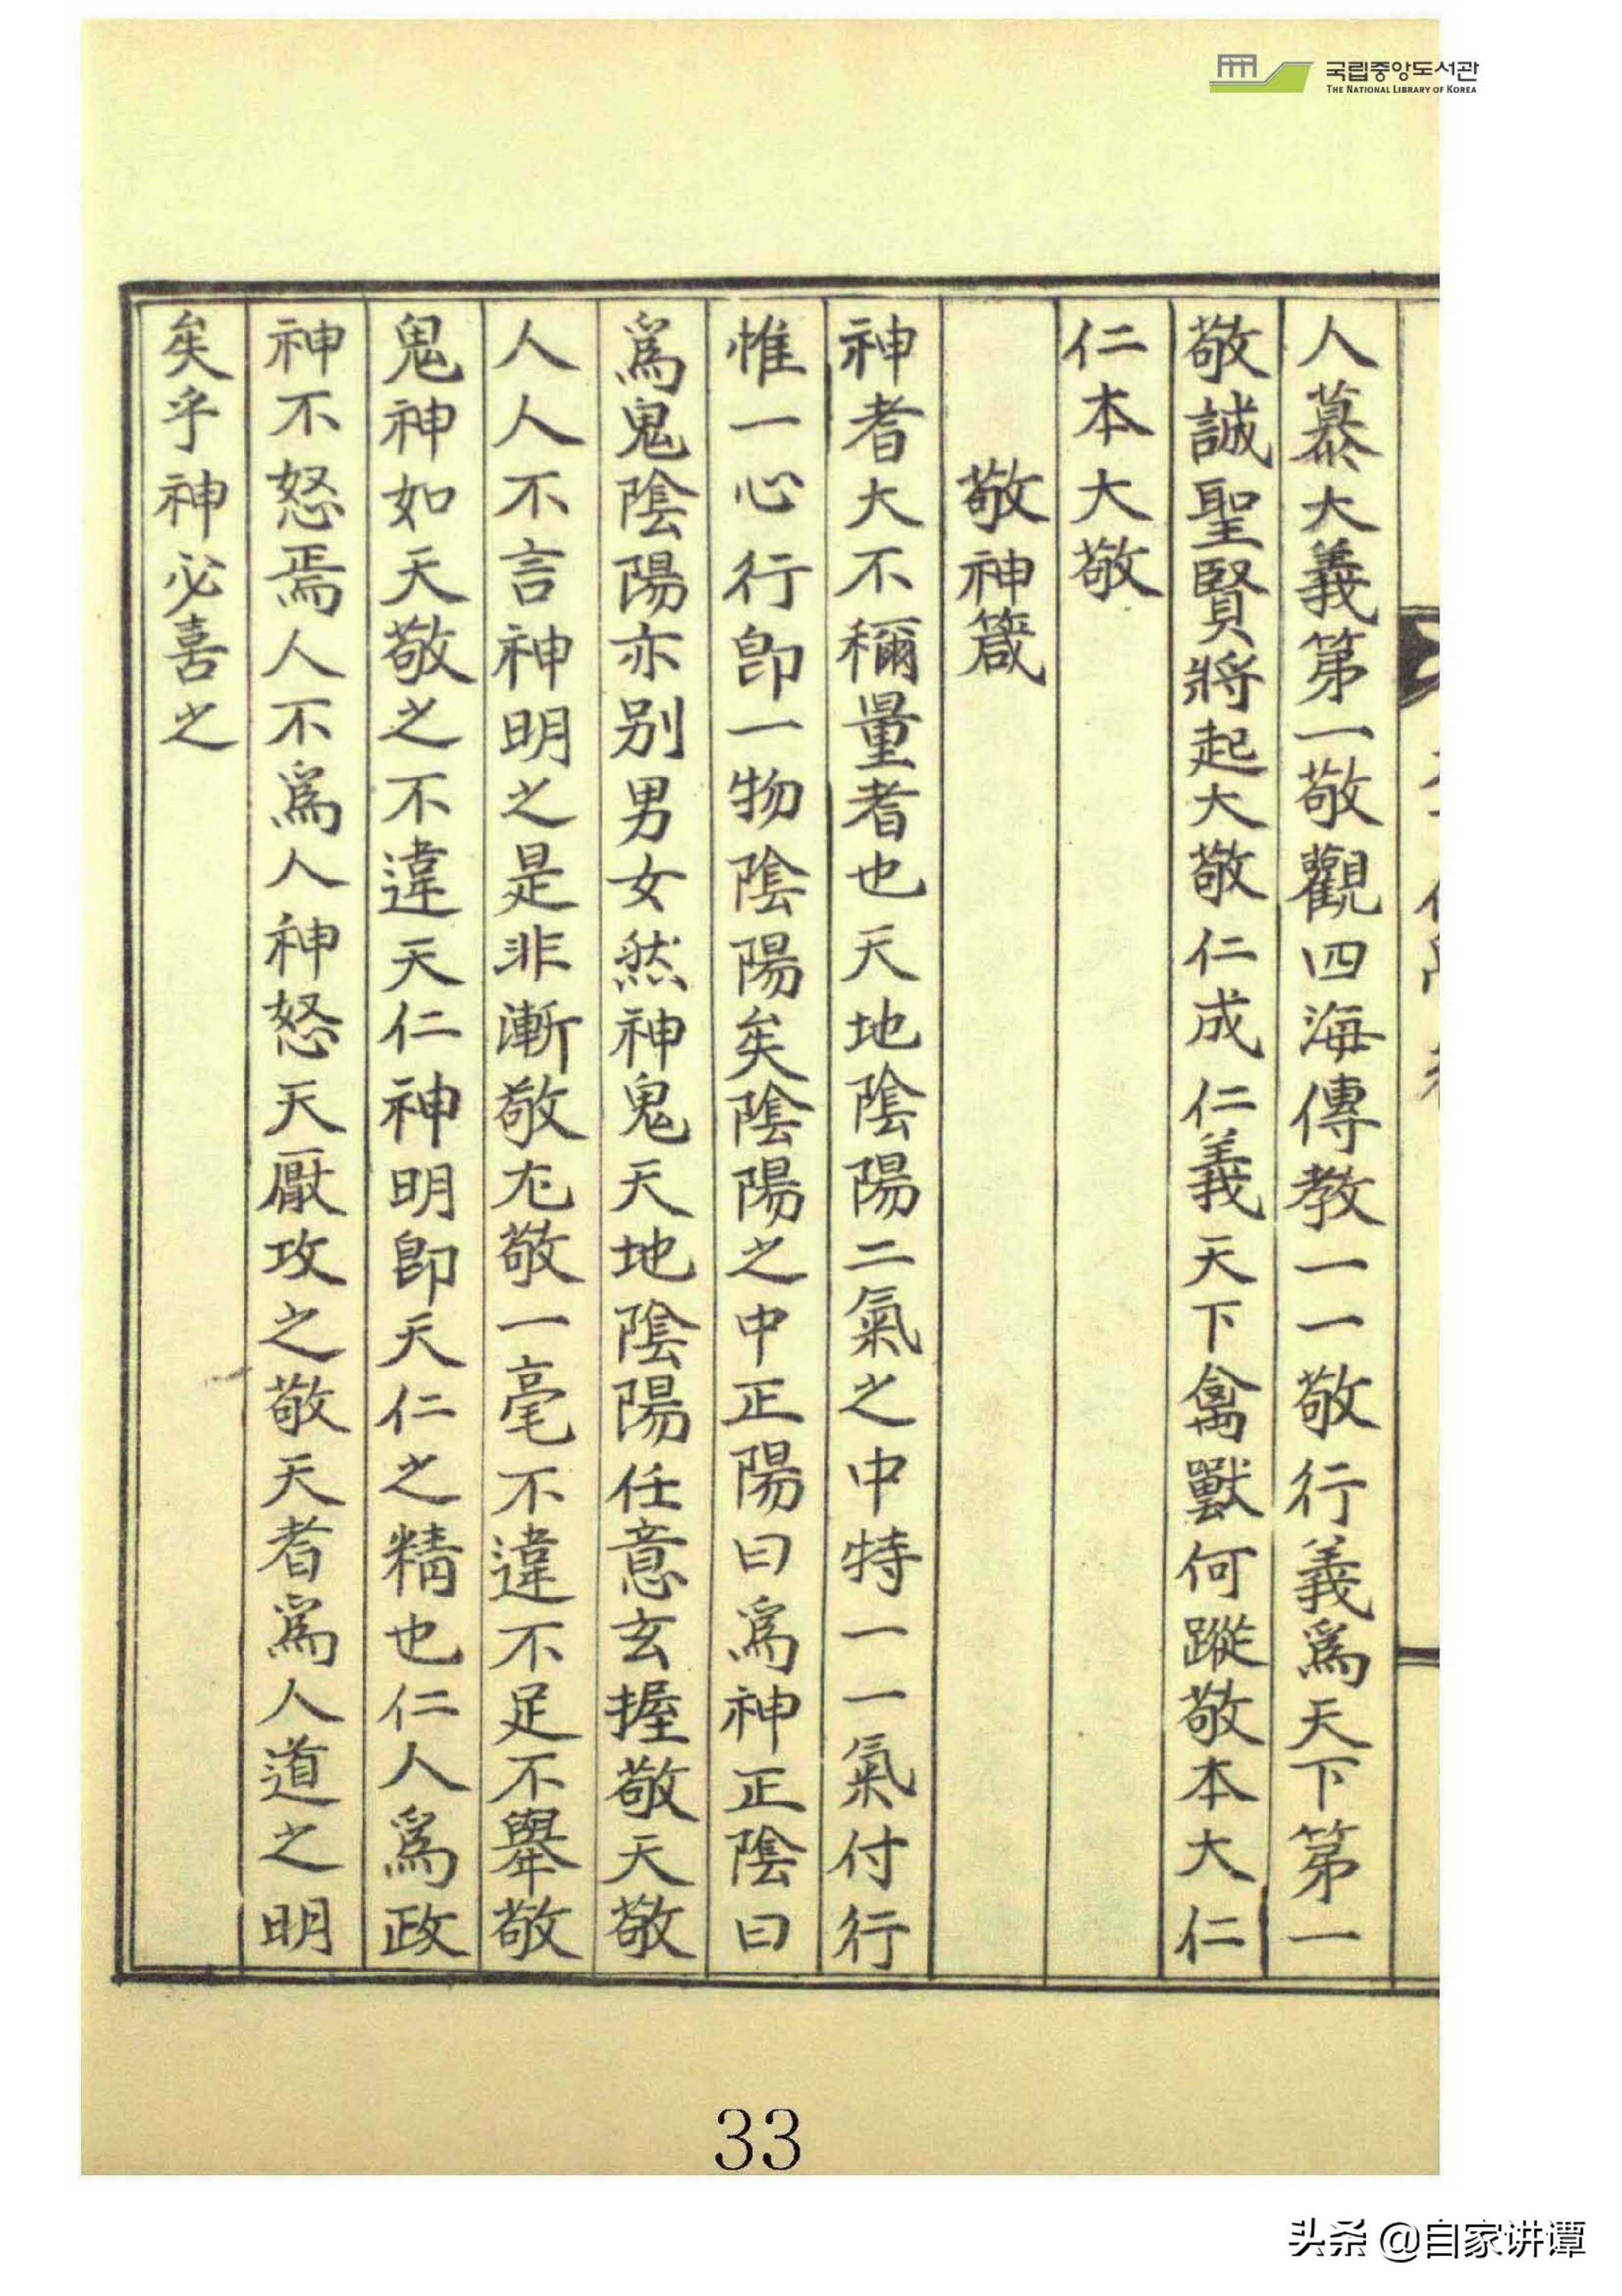 국립중앙도서관
THE NATIONAL LIBRARY OF KOREA
人慕大義第一敬觀四海傳教一一敬行義爲天下第一
敬誠聖賢將起大敬仁成仁義天下禽獸何蹤敬本大仁
仁本大敬
敬神箴
神者大不稱量者也天地陰陽二氣之中特一一氣付行
惟一心行卽一物陰陽矣陰陽之中正陽曰爲神正陰曰
爲鬼陰陽亦别男女然神鬼天地陰陽任意玄握敬天敬
人人不言神明之是非漸敬尤敬一毫不違不足不舉敬
鬼神如天敬之不違天仁神明卽天仁之精也仁人爲政
神不怒焉人不爲人神怒天厭攻之敬天者爲人道之明
矣乎神必喜之
33
头条 @自家讲谭